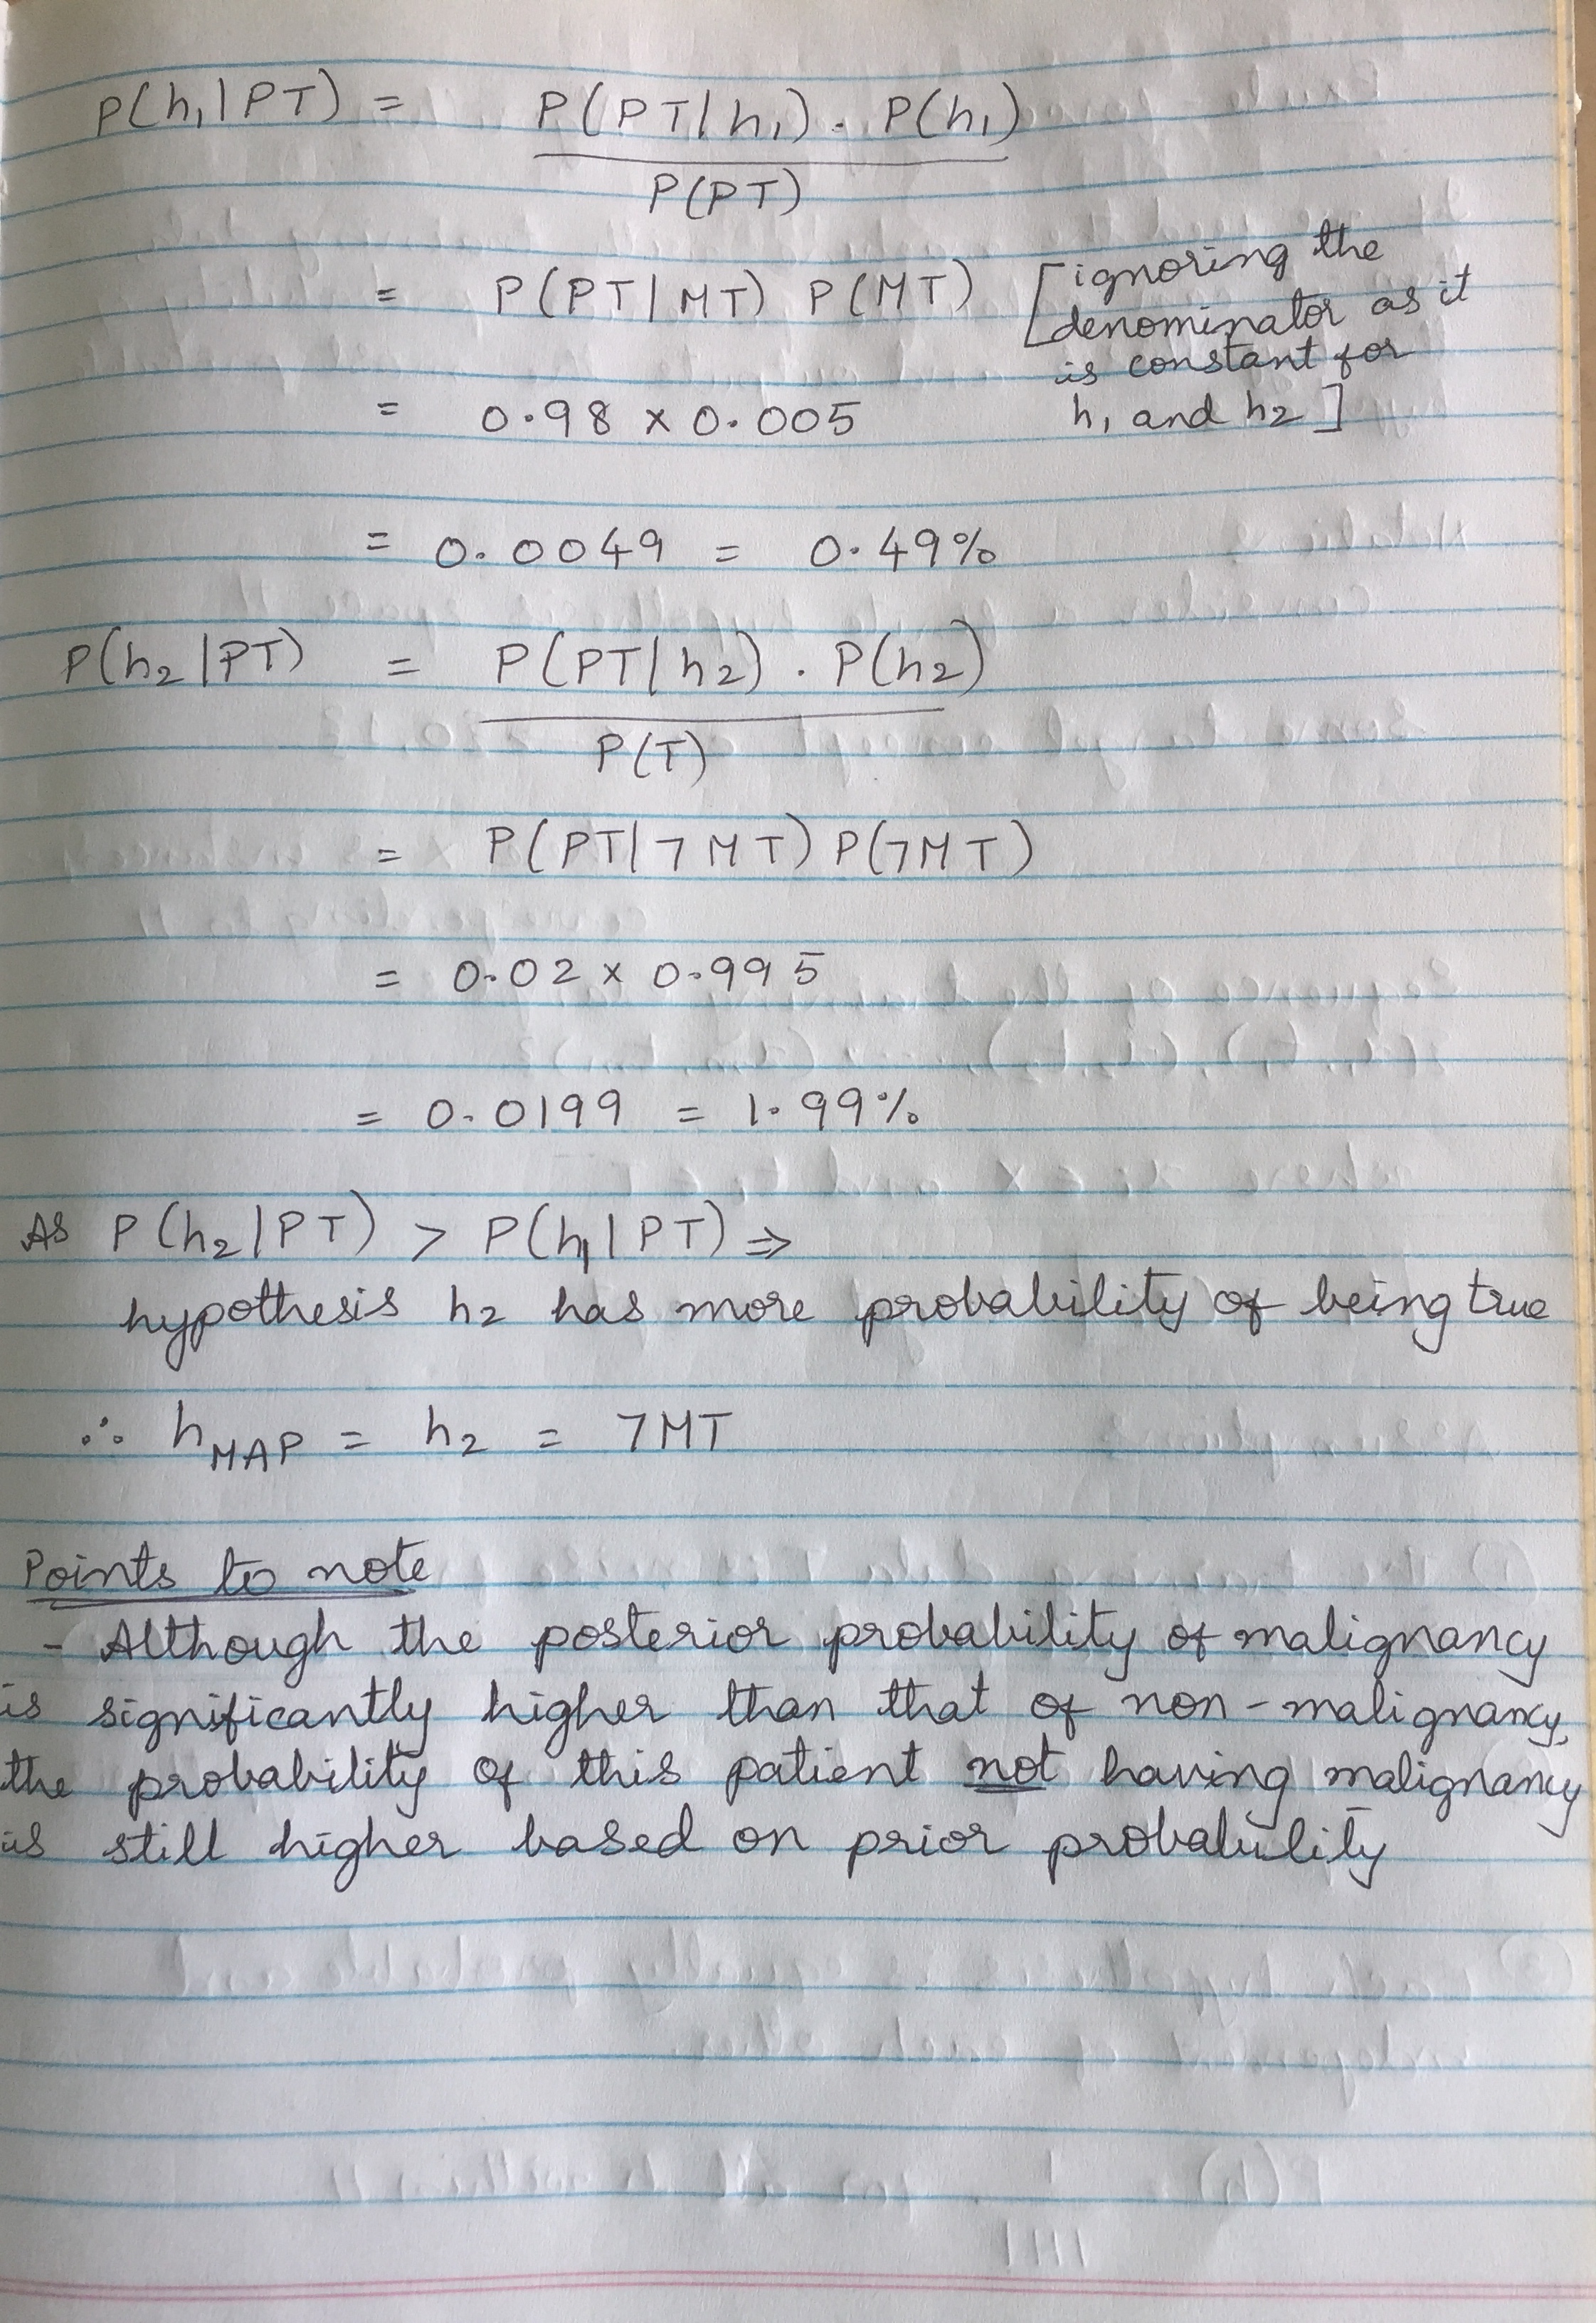 P(h₁|PT) = P(PT|h₁) . P(h₁)
P(PT)
= P(PT|MT) P(MT) [ignoring the
denominator as it
is constant for
= 0.98 × 0.005 h₁ and h₂]
= 0.0049 = 0.49%
P(h₂|PT) = P(PT|h₂) . P(h₂)
P(T)
= P(PT|¬MT) P(¬MT)
= 0.02 × 0.995
= 0.0199 = 1.99%
As P(h₂|PT) > P(h₁|PT) ⇒
hypothesis h₂ has more probability of being true
∴ h_MAP = h₂ = ¬MT
Points to note
- Although the posterior probability of malignancy
is significantly higher than that of non-malignancy,
the probability of this patient not having malignancy
is still higher based on prior probability